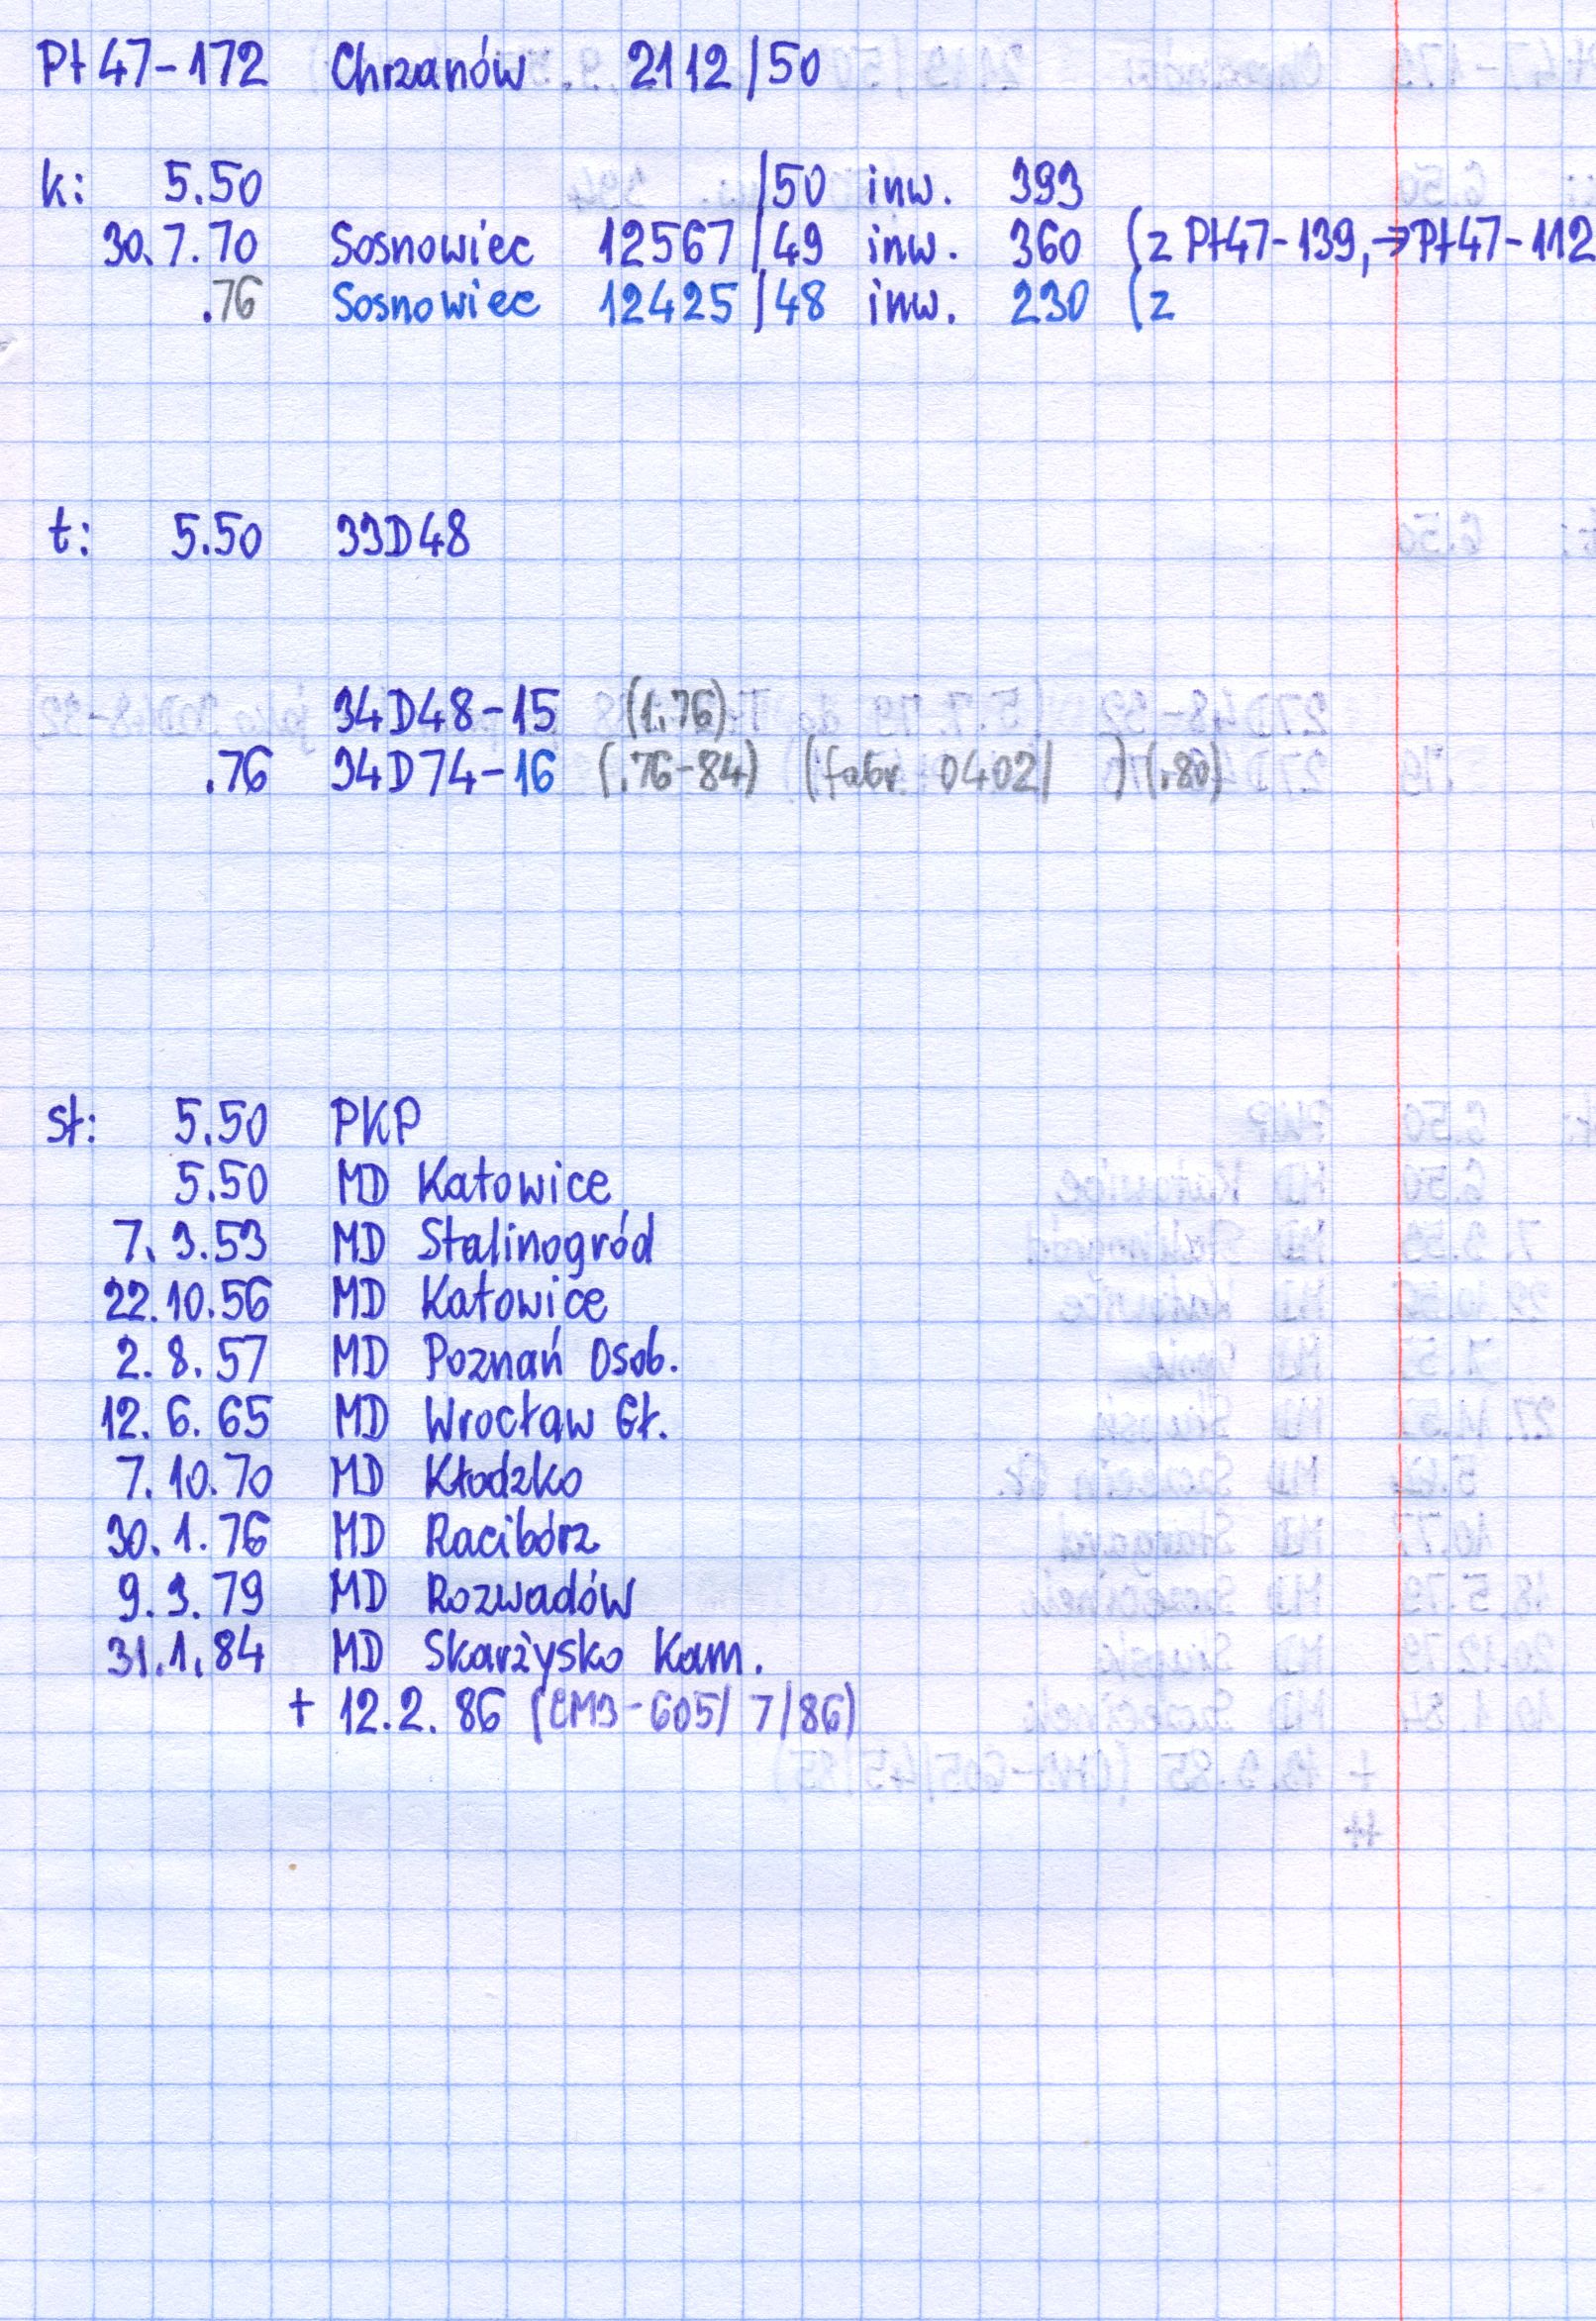 Pt47-172 Chrzanów 2112/50
k: 5.50 /50 inw. 393
30.7.70 Sosnowiec 12567/49 inw. 360 (z Pt47-139,→Pt47-112
.76 Sosnowiec 12425/48 inw. 230 (z
t: 5.50 33D48
34D48-15 (1.76)
.76 34D74-16 (.76-84) (fabr. 0402/ ) (.80)
st: 5.50 PKP
5.50 MD Katowice
7.3.53 MD Stalinogród
22.10.56 MD Katowice
2.8.57 MD Poznań Osob.
12.6.65 MD Wrocław Gł.
7.10.70 MD Kłodzko
30.1.76 MD Racibórz
9.3.79 MD Rozwadów
31.1.84 MD Skarżysko Kam.
+ 12.2.86 (CM3-605/7/86)